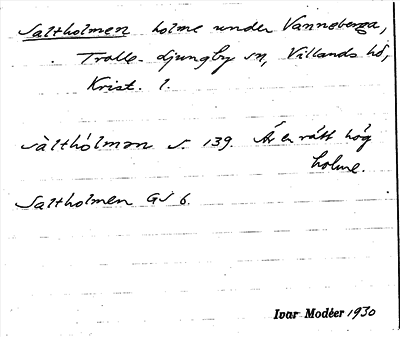 Saltholmen holme under Vanneberga,
Trolle-Ljungby sn, Villands hd,
Krist. l.
sàlthólmən s. 139. Är en rätt hög
holme.
Saltholmen GS 6.
Ivar Modéer 1930